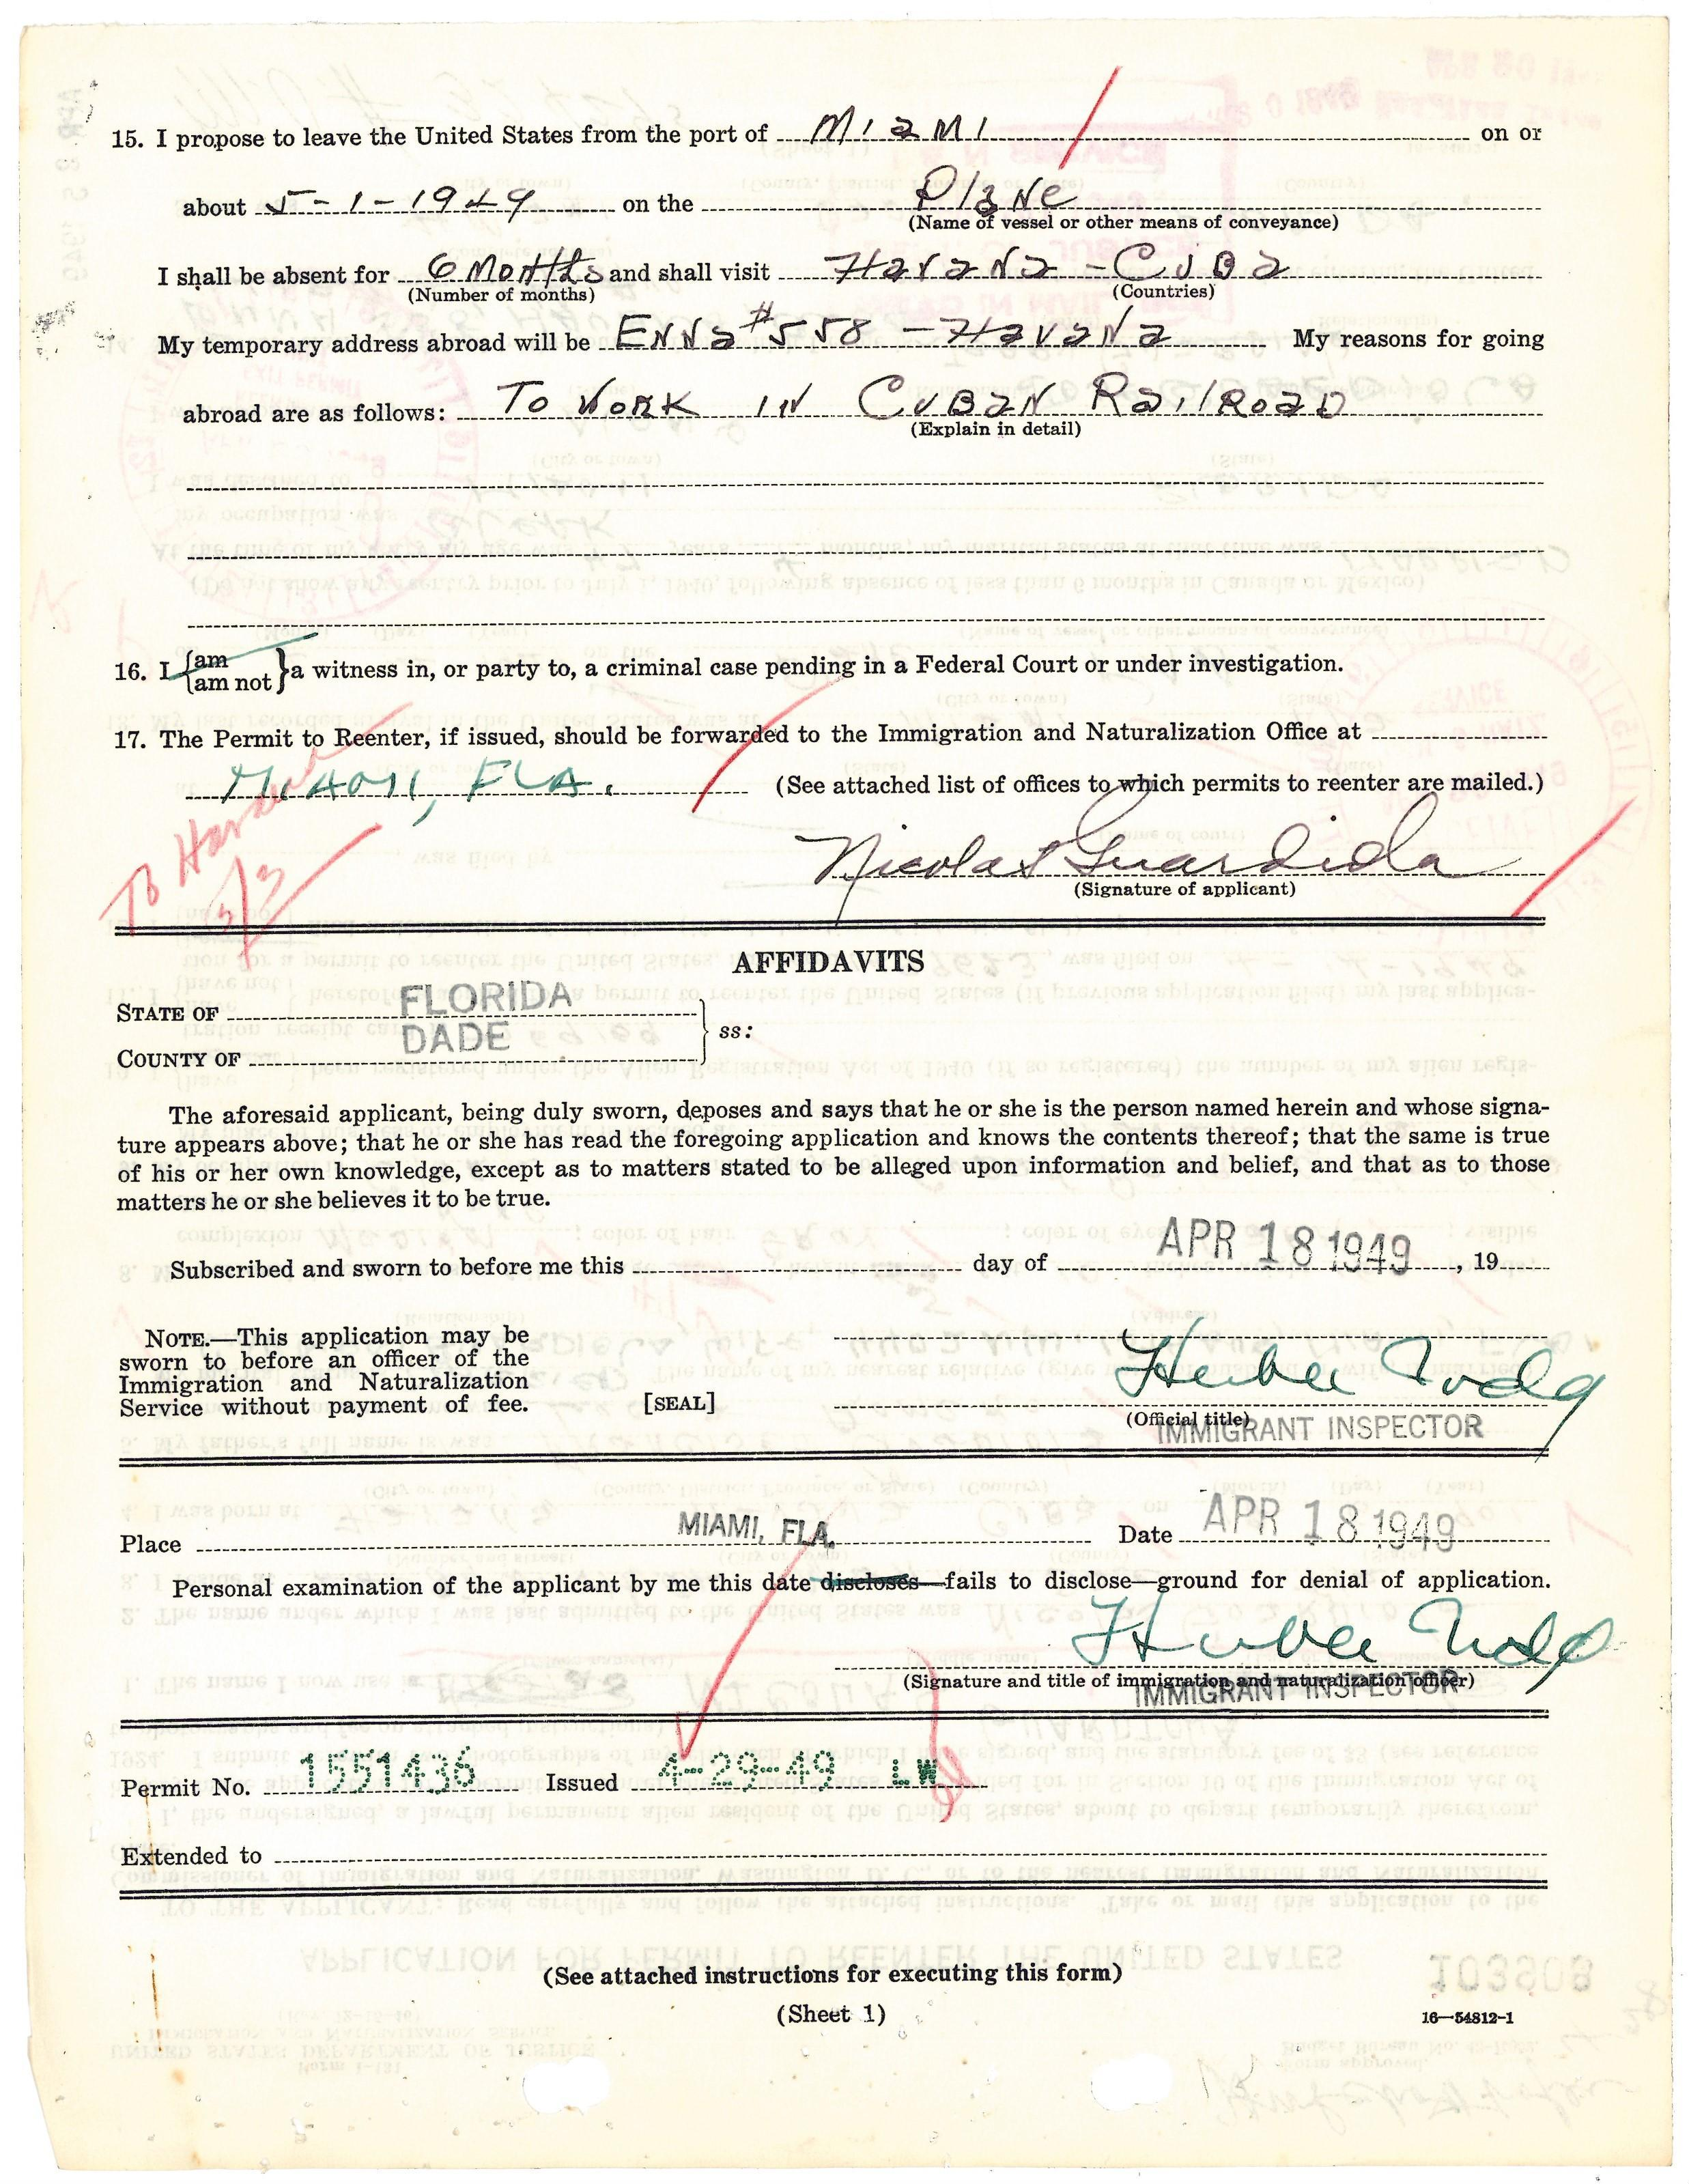 15. I propose to leave the United States from the port of Miami on or
about 5-1-1949 on the Plane
(Name of vessel or other means of conveyance)
I shall be absent for 6 Months and shall visit Havana - Cuba
(Number of months) (Countries)
My temporary address abroad will be Enna #558 - Havana My reasons for going
abroad are as follows: To Work in Cuban Railroad
(Explain in detail)
16. I {am
am not} a witness in, or party to, a criminal case pending in a Federal Court or under investigation.
17. The Permit to Reenter, if issued, should be forwarded to the Immigration and Naturalization Office at
MIAMI, FLA. (See attached list of offices to which permits to reenter are mailed.)
To
5/3
Nicolas Guardiola
(Signature of applicant)
AFFIDAVITS
STATE OF FLORIDA
ss:
COUNTY OF DADE
The aforesaid applicant, being duly sworn, deposes and says that he or she is the person named herein and whose signa-
ture appears above; that he or she has read the foregoing application and knows the contents thereof; that the same is true
of his or her own knowledge, except as to matters stated to be alleged upon information and belief, and that as to those
matters he or she believes it to be true.
Subscribed and sworn to before me this day of APR 18 1949, 19
NOTE.—This application may be
sworn to before an officer of the
Immigration and Naturalization
Service without payment of fee.
[SEAL]
(Official title)
IMMIGRANT INSPECTOR
Place MIAMI, FLA. Date APR 18 1949
Personal examination of the applicant by me this date discloses—fails to disclose—ground for denial of application.
(Signature and title of immigration and naturalization officer)
IMMIGRANT INSPECTOR
Permit No. 1551436 Issued 4-29-49 LW
Extended to
(See attached instructions for executing this form)
(Sheet 1)
16—54812-1